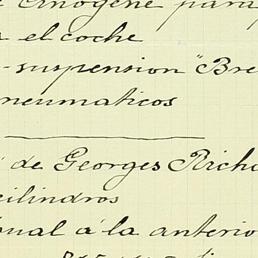 Cinógene para
el coche
suspension "Bre
neumaticos
de Georges Richa
cilindros
igual á la anterio